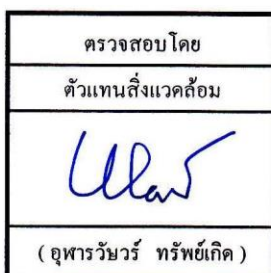 ตรวจสอบโดย
ตัวแทนสิ่งแวดล้อม
( อุฬารวัษวร์ ทรัพย์เกิด )